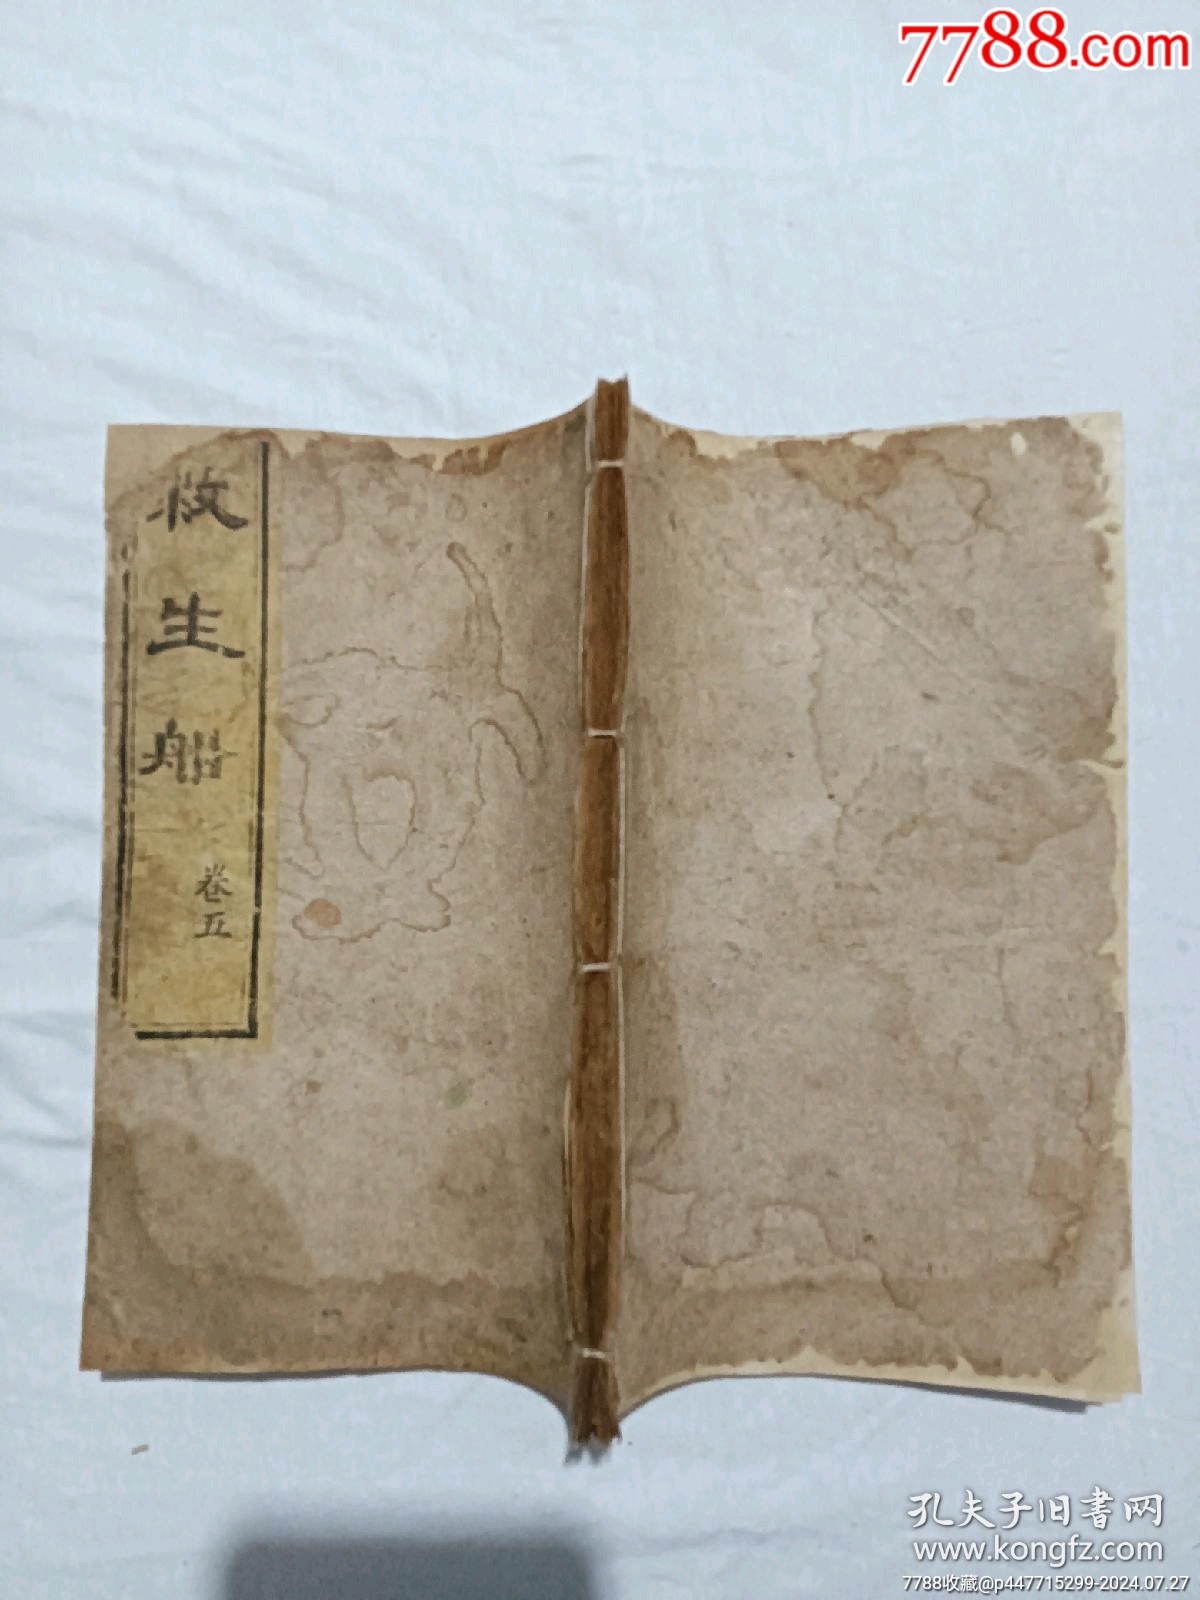 7788.com
救生船
卷五
孔夫子旧书网
www.kongfz.com
7788收藏@p447715299-2024.07.27